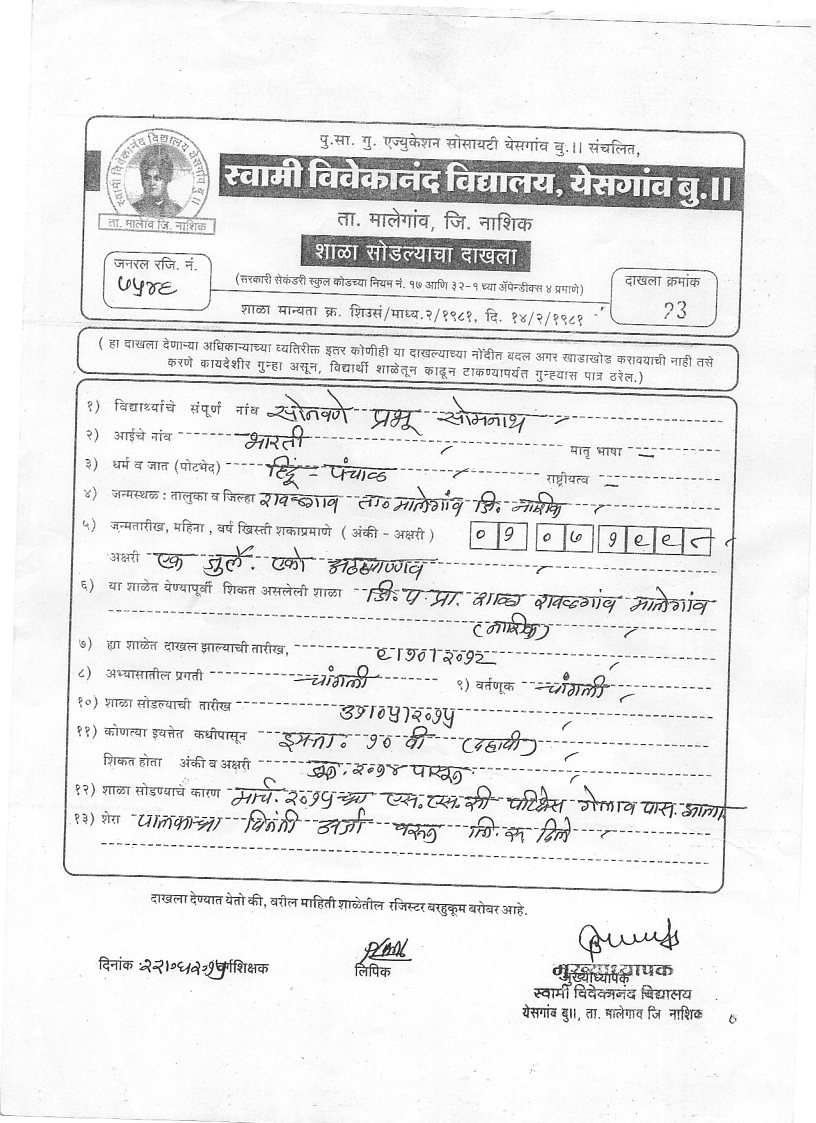 पु.सा. गु. एज्युकेशन सोसायटी येसगांव बु.।। संचलित,
स्वामी विवेकानंद विद्यालय, येसगांव बु.।।
स्वामी विवेकानंद विद्यालय येसगांव बु ।।
ता. मालेगांव जि. नाशिक
ता. मालेगांव, जि. नाशिक
शाळा सोडल्याचा दाखला
जनरल रजि. नं.
७५४६
(सरकारी सेकंडरी स्कुल कोडच्या नियम नं. १७ आणि ३२-१ च्या ॲपेन्डीक्स ४ प्रमाणे)
दाखला क्रमांक
२३
शाळा मान्यता क्र. शिउसं/माध्य.२/१९८१, दि. १४/२/१९८१
( हा दाखला देणाऱ्या अधिकाऱ्याच्या व्यतिरीक्त इतर कोणीही या दाखल्याच्या नोंदीत बदल अगर खाडाखोड करावयाची नाही तसे
करणे कायदेशीर गुन्हा असून, विद्यार्थी शाळेतून काढून टाकण्यापर्यंत गुन्ह्यास पात्र ठरेल.)
१) विद्यार्थ्याचे संपूर्ण नांव सोनवणे प्रभू सोमनाथ
२) आईचे नांव भारती मातृ भाषा —
३) धर्म व जात (पोटभेद) हिंदू - पंचाळ राष्ट्रीयत्व —
४) जन्मस्थळ : तालुका व जिल्हा रावळगाव ता. मालेगांव जि. नाशिक
५) जन्मतारीख, महिना , वर्ष ख्रिस्ती शकाप्रमाणे ( अंकी - अक्षरी ) ०१ ०७ १९९८
अक्षरी एक जुलै. एकोणीसशे अठ्ठ्याण्णव
६) या शाळेत येण्यापूर्वी शिकत असलेली शाळा जि. प. प्रा. शाळा रावळगांव मालेगांव
(नाशिक)
७) ह्या शाळेत दाखल झाल्याची तारीख, ९।१०।२०१२
८) अभ्यासातील प्रगती चांगली ९) वर्तणूक चांगली
१०) शाळा सोडल्याची तारीख ३१।०५।२०१५
११) कोणत्या इयत्तेत कधीपासून इयत्ता. १० वी (दहावी)
शिकत होता अंकी व अक्षरी जून. २०१४ पासून
१२) शाळा सोडण्याचे कारण मार्च. २०१५च्या एस. एस. सी परिक्षेस गेला व पास. झाला
१३) शेरा पालकाच्या विनंती अर्जा वरून दिले
दाखला देण्यात येतो की, वरील माहिती शाळेतील रजिस्टर बरहुकूम बरोबर आहे.
दिनांक
शिक्षक
लिपिक
मुख्याध्यापक
मुख्याध्यापक
स्वामी विवेकानंद विद्यालय
येसगांव बु।।, ता. मालेगाव जि नाशिक